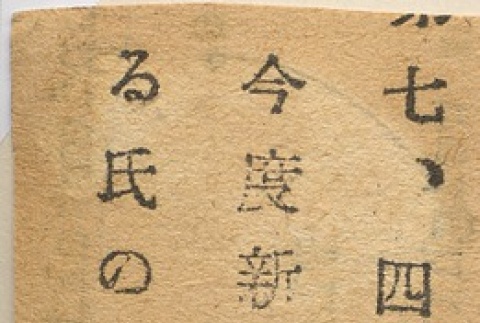 七、四
今度新
る氏の